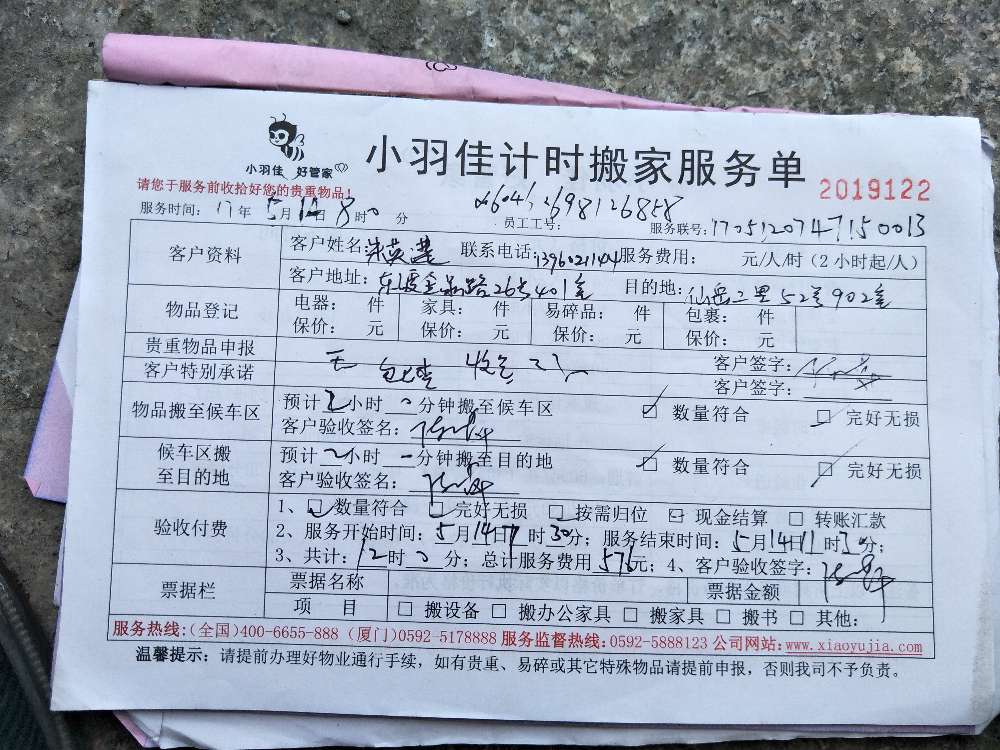 小羽佳 好管家
小羽佳计时搬家服务单
2019122
请您于服务前收拾好您的贵重物品!
服务时间: 17年5月14日8时0分 员工工号: 服务联号:1705120747150013
客户资料 客户姓名: 联系电话: 服务费用: 元/人/时(2小时起/人)
客户地址: 26号401室 目的地:仙岳二里52号902室
物品登记 电器: 件 家具: 件 易碎品: 件 包裹: 件
保价: 元 保价: 元 保价: 元 保价: 元
贵重物品申报 无 客户签字:
客户特别承诺 客户签字:
物品搬至候车区 预计2小时0分钟搬至候车区 数量符合 完好无损
客户验收签名:
候车区搬至目的地 预计2小时分钟搬至目的地 数量符合 完好无损
客户验收签名:
验收付费 1、数量符合 完好无损 按需归位 现金结算 转账汇款
2、服务开始时间:5月14日时30分; 服务结束时间:5月14日11时30分;
3、共计:12时0分; 总计服务费用576元; 4、客户签字:
票据栏 票据名称 票据金额
项目 搬设备 搬办公家具 搬家具 搬书 其他:
服务热线:(全国)400-6655-888 (厦门)0592-5178888 服务监督热线:0592-5888123 公司网站:www.xiaoyujia.com
温馨提示: 请提前办理好物业通行手续,如有贵重、易碎或其它特殊物品请提前申报,否则我司不予负责。